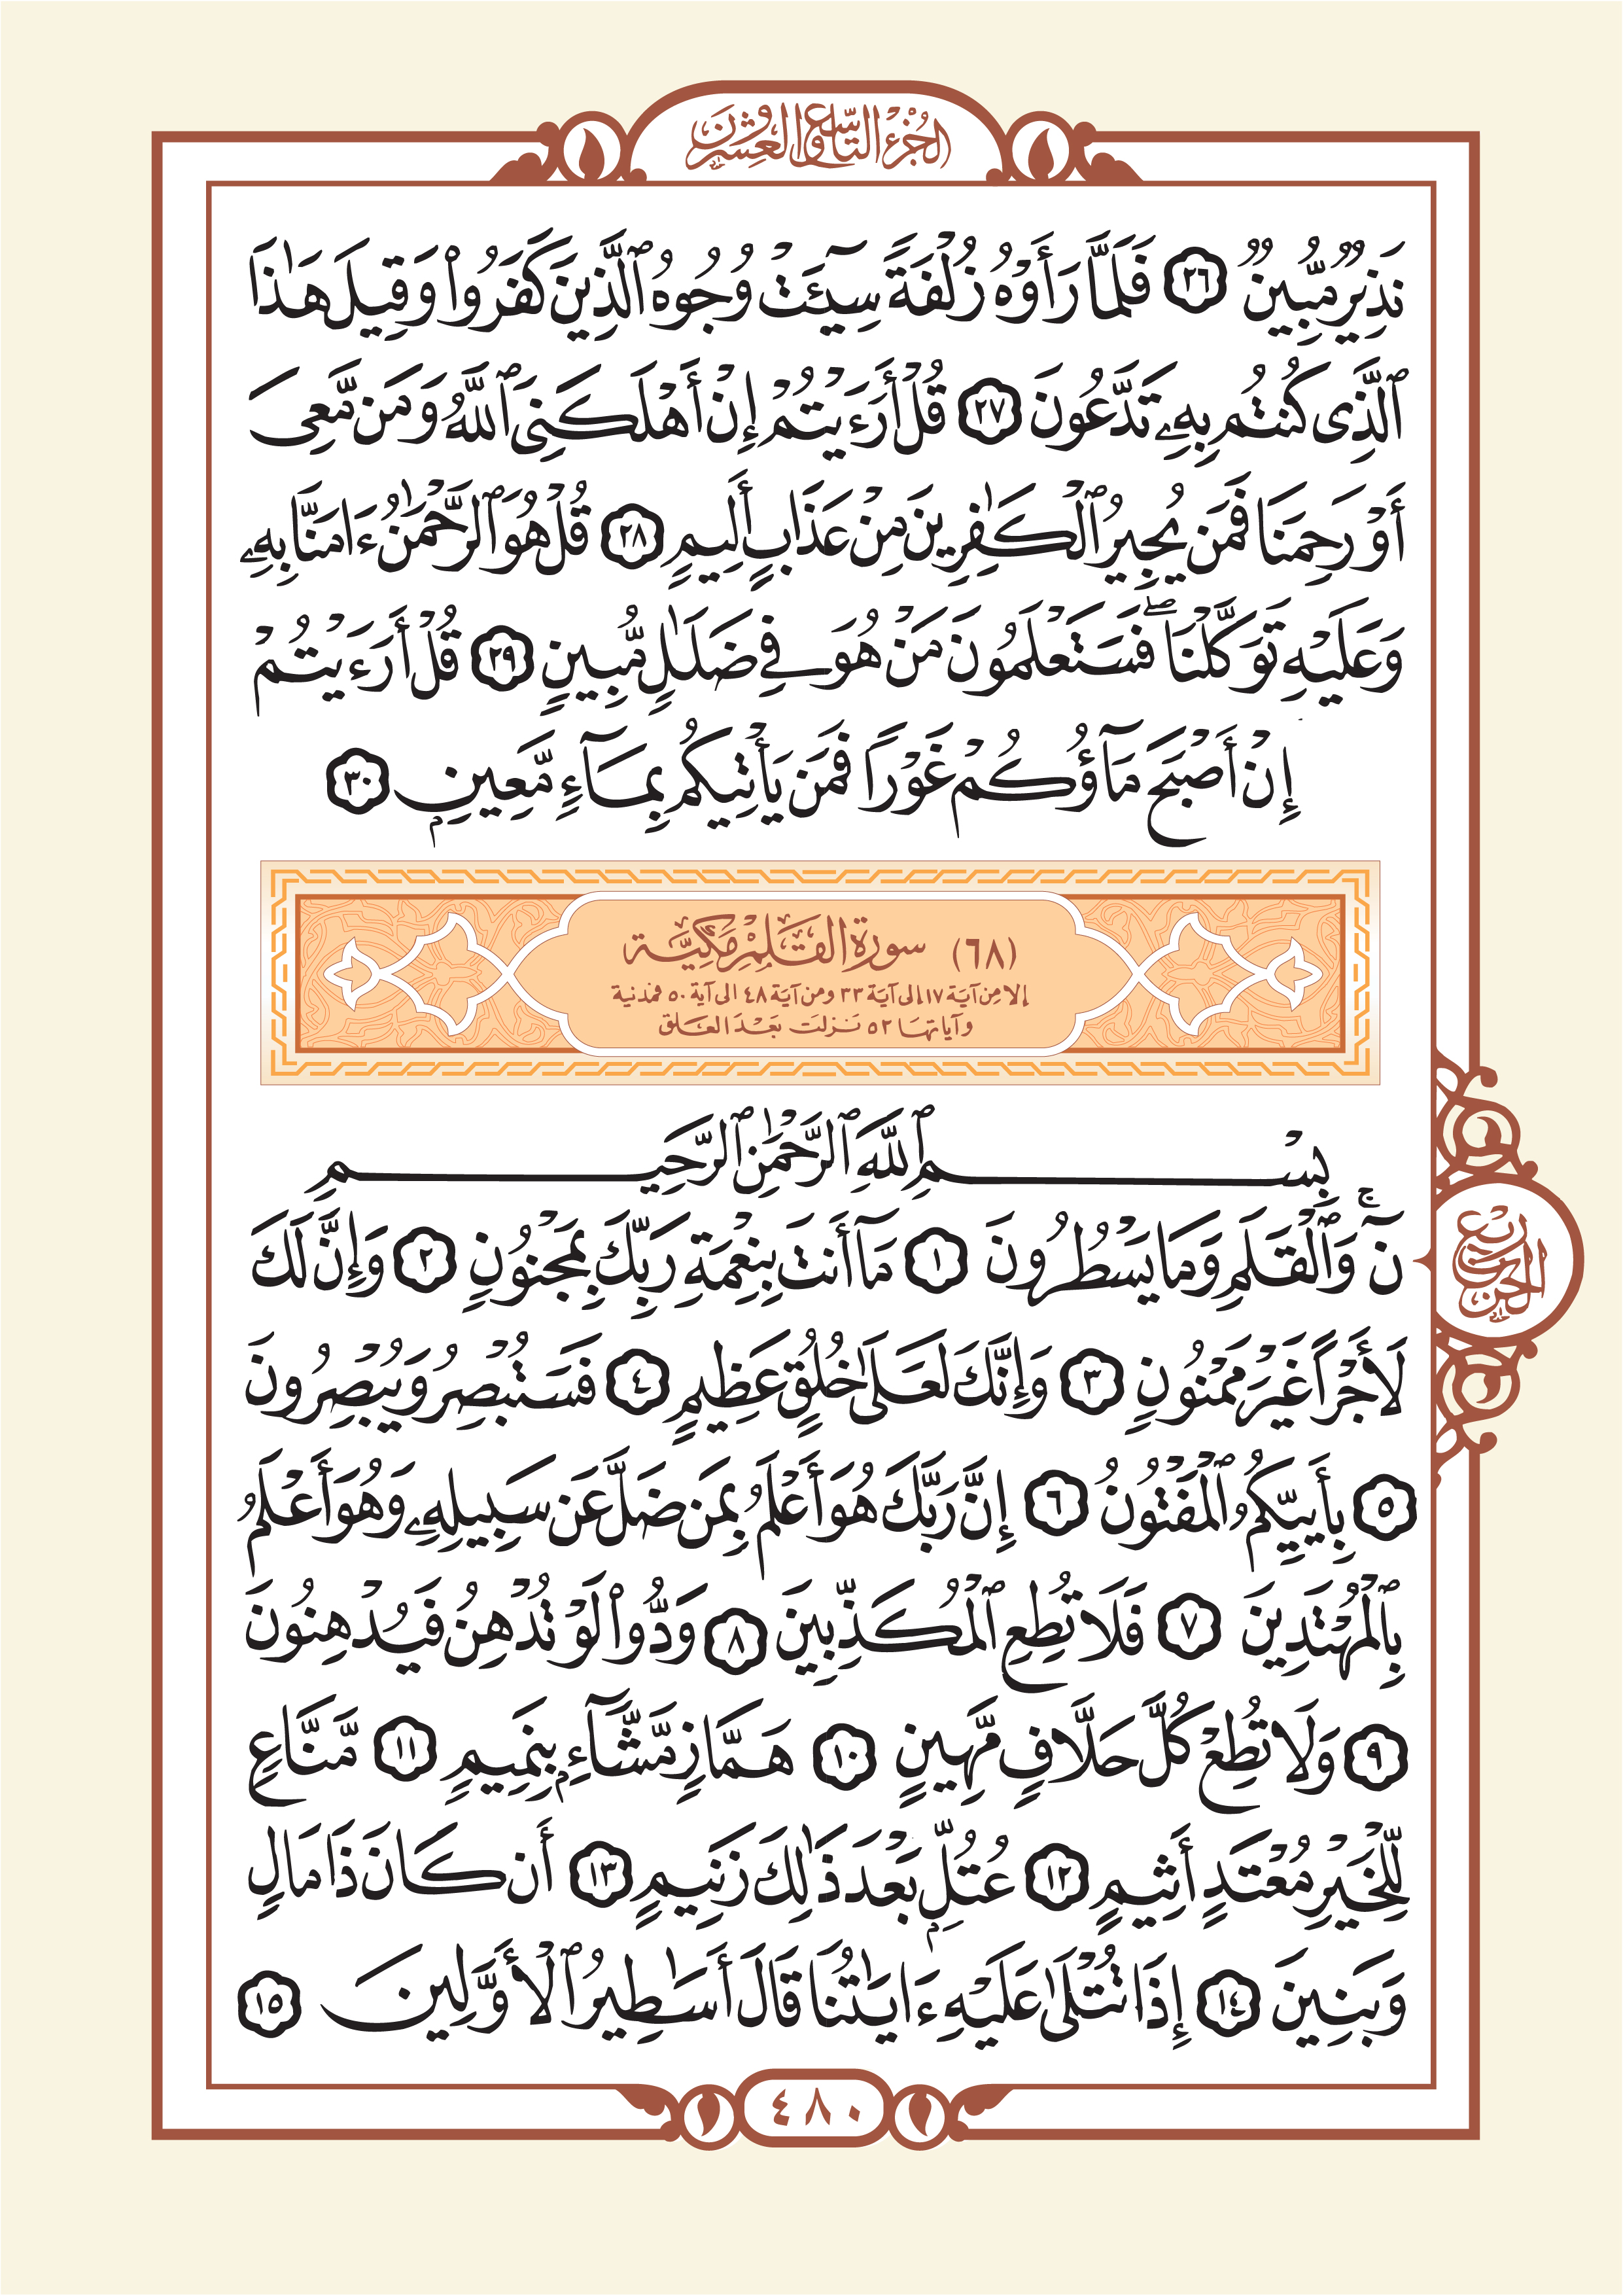 الجزء التاسع والعشرون
نَذِيرٌ مُّبِينٌ ٢٦ فَلَمَّا رَأَوْهُ زُلْفَةً سِيٓـَٔتْ وُجُوهُ ٱلَّذِينَ كَفَرُوا۟ وَقِيلَ هَـٰذَا
ٱلَّذِى كُنتُم بِهِۦ تَدَّعُونَ ٢٧ قُلْ أَرَءَيْتُمْ إِنْ أَهْلَكَنِىَ ٱللَّهُ وَمَن مَّعِىَ
أَوْ رَحِمَنَا فَمَن يُجِيرُ ٱلْكَـٰفِرِينَ مِنْ عَذَابٍ أَلِيمٍ ٢٨ قُلْ هُوَ ٱلرَّحْمَـٰنُ ءَامَنَّا بِهِۦ
وَعَلَيْهِ تَوَكَّلْنَا ۖ فَسَتَعْلَمُونَ مَنْ هُوَ فِى ضَلَـٰلٍ مُّبِينٍ ٢٩ قُلْ أَرَءَيْتُمْ
إِنْ أَصْبَحَ مَآؤُكُمْ غَوْرًا فَمَن يَأْتِيكُم بِمَآءٍ مَّعِينٍۭ ٣٠
(٦٨) سورة القلم مكية
إلا من آية ١٧ إلى آية ٣٣ ومن آية ٤٨ الى آية ٥٠ فمدنية
وآياتها ٥٢ نزلت بعد العلق
بِسْمِ ٱللَّهِ ٱلرَّحْمَـٰنِ ٱلرَّحِيمِ
نٓ ۚ وَٱلْقَلَمِ وَمَا يَسْطُرُونَ ١ مَآ أَنتَ بِنِعْمَةِ رَبِّكَ بِمَجْنُونٍ ٢ وَإِنَّ لَكَ
لَأَجْرًا غَيْرَ مَمْنُونٍ ٣ وَإِنَّكَ لَعَلَىٰ خُلُقٍ عَظِيمٍ ٤ فَسَتُبْصِرُ وَيُبْصِرُونَ
٥ بِأَييِّكُمُ ٱلْمَفْتُونُ ٦ إِنَّ رَبَّكَ هُوَ أَعْلَمُ بِمَن ضَلَّ عَن سَبِيلِهِۦ وَهُوَ أَعْلَمُ
بِٱلْمُهْتَدِينَ ٧ فَلَا تُطِعِ ٱلْمُكَذِّبِينَ ٨ وَدُّوا۟ لَوْ تُدْهِنُ فَيُدْهِنُونَ
٩ وَلَا تُطِعْ كُلَّ حَلَّافٍ مَّهِينٍ ١٠ هَمَّازٍ مَّشَّآءٍۭ بِنَمِيمٍ ١١ مَّنَّاعٍ
لِّلْخَيْرِ مُعْتَدٍ أَثِيمٍ ١٢ عُتُلٍّۭ بَعْدَ ذَٰلِكَ زَنِيمٍ ١٣ أَن كَانَ ذَا مَالٍ
وَبَنِينَ ١٤ إِذَا تُتْلَىٰ عَلَيْهِ ءَايَـٰتُنَا قَالَ أَسَـٰطِيرُ ٱلْأَوَّلِينَ ١٥
ربع الحزب
٤٨٠